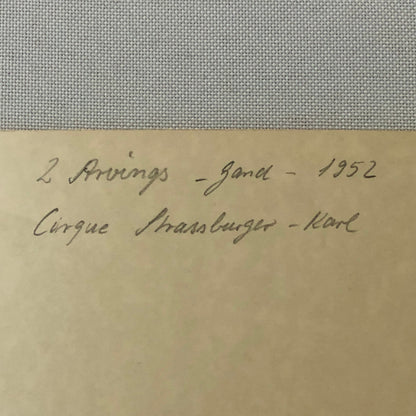 2 Arvings - Gand - 1952
Cirque Strassburger - Karl